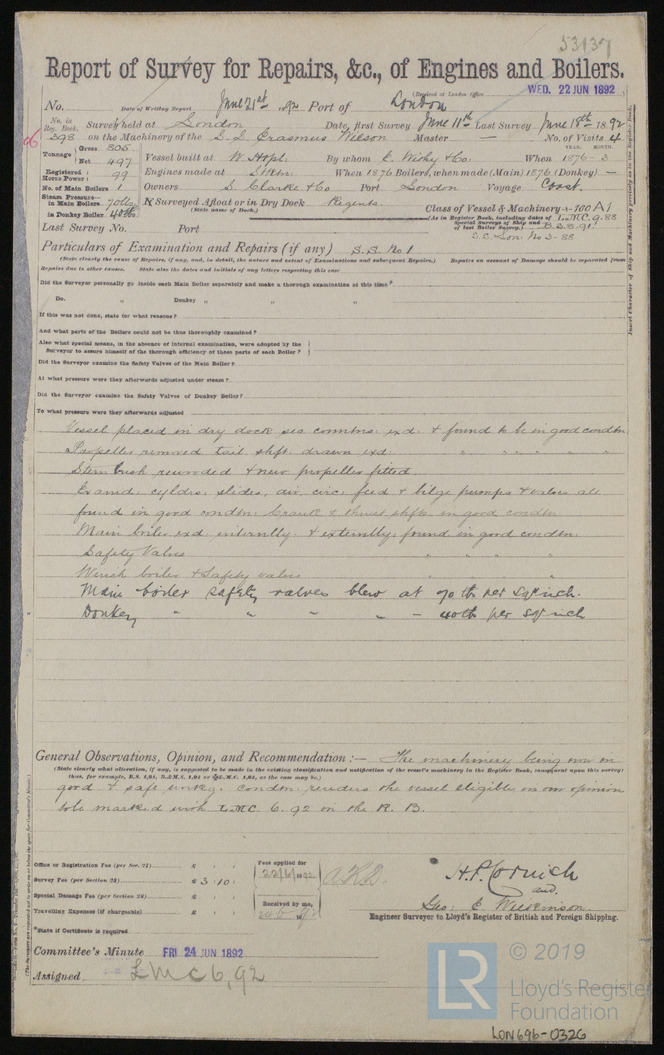 53137
Report of Survey for Repairs, &c., of Engines and Boilers.
(Received at London Office WED. 22 JUN 1892
No. Date of Writing Report June 21st 1892 Port of London
No. in Reg. Book. 393 Survey held at London Date, first Survey June 11th Last Survey June 18th 1892
on the Machinery of the S.S. Erasmus Wilson Master — No. of Visits 4
Tonnage Gross 805 Net 497 Vessel built at W. Hrpl. By whom E. Withy & Co. When 1876 - 3
YEAR. MONTH.
Registered Horse Power 99 Engines made at When 1876 Boilers, when made (Main) 1876 (Donkey) —
No. of Main Boilers 1 Owners S. Clarke & Co Port London Voyage Coast.
Steam Pressure— in Main Boilers 70 lbs. If Surveyed Afloat or in Dry Dock Regents. Class of Vessel & Machinery 100 A1
in Donkey Boiler 40 lbs. (State name of Dock.) (As in Register Book, including dates of Special Surveys of Ship and of last Boiler Survey.) L.M.C. 9.88
B.S. 8.91
Last Survey No. Port S.S. Lon. No 3-88
Particulars of Examination and Repairs (if any) S.S. No 1
(State clearly the cause of Repairs, if any, and, in detail, the nature and extent of Examinations and subsequent Repairs.) Repairs on account of Damage should be separated from
Repairs due to other causes. State also the dates and initials of any letters respecting this case
Did the Surveyor personally go inside each Main Boiler separately and make a thorough examination at this time?
Do. „ Donkey „ „ „
If this was not done, state for what reasons?
And what parts of the Boilers could not be thoroughly examined?
Also what special means, in the absence of internal examination, were adopted by the
Surveyor to assure himself of the thorough efficiency of these parts of each Boiler?
Did the Surveyor examine the Safety Valves of the Main Boiler?
At what pressure were they afterwards adjusted under steam?
Did the Surveyor examine the Safety Valves of Donkey Boiler?
To what pressure were they afterwards adjusted
Vessel placed in dry dock sea conntns. exd. & found to be in good condtn
Propeller removed tail shft. drawn exd. " " " " "
Stern bush rewooded & new propeller fitted
Examd. cyldrs. slides, air, circ, feed & bilge pumps & valves all
found in good condtn. Crank & thrust shfts in good condtn
Main boiler exd internlly & externlly found in good condtn.
Safety Valves " " " "
Winch boiler & Safety valves " "
Main boiler safety valves blew at 70 lb per sq inch.
Donkey " " " " - 40 lb per sq inch
General Observations, Opinion, and Recommendation :— The machinery being now in
(State clearly what alteration, if any, is supposed to be made in the existing classification and notification of the vessel's machinery in the Register Book, consequent upon this survey:
thus, for example, B.S. 1,91, B.&M.S. 1,91 or L.M.C. 1,91, as the case may be.)
good & safe workg. condtn. renders the vessel eligible in our opinion
to be marked with L.M.C. 6. 92 in the R. B.
Office or Registration Fee (per Sec. 27) £ : :
Survey Fee (per Section 28) £ 3 : 10 :
Special Damage Fee (per Section 28) £ : :
Travelling Expenses (if chargeable) £ : :
Fees applied for 22/6/1892
Received by me,
H. P. Cornish
and.
Geo: E. Wilkinson
Engineer Surveyor to Lloyd's Register of British and Foreign Shipping.
*State if Certificate is required
Committee's Minute FRI 24 JUN 1892
Assigned LMC 6,92
LR © 2019
Lloyd's Register
Foundation
LON696-0326